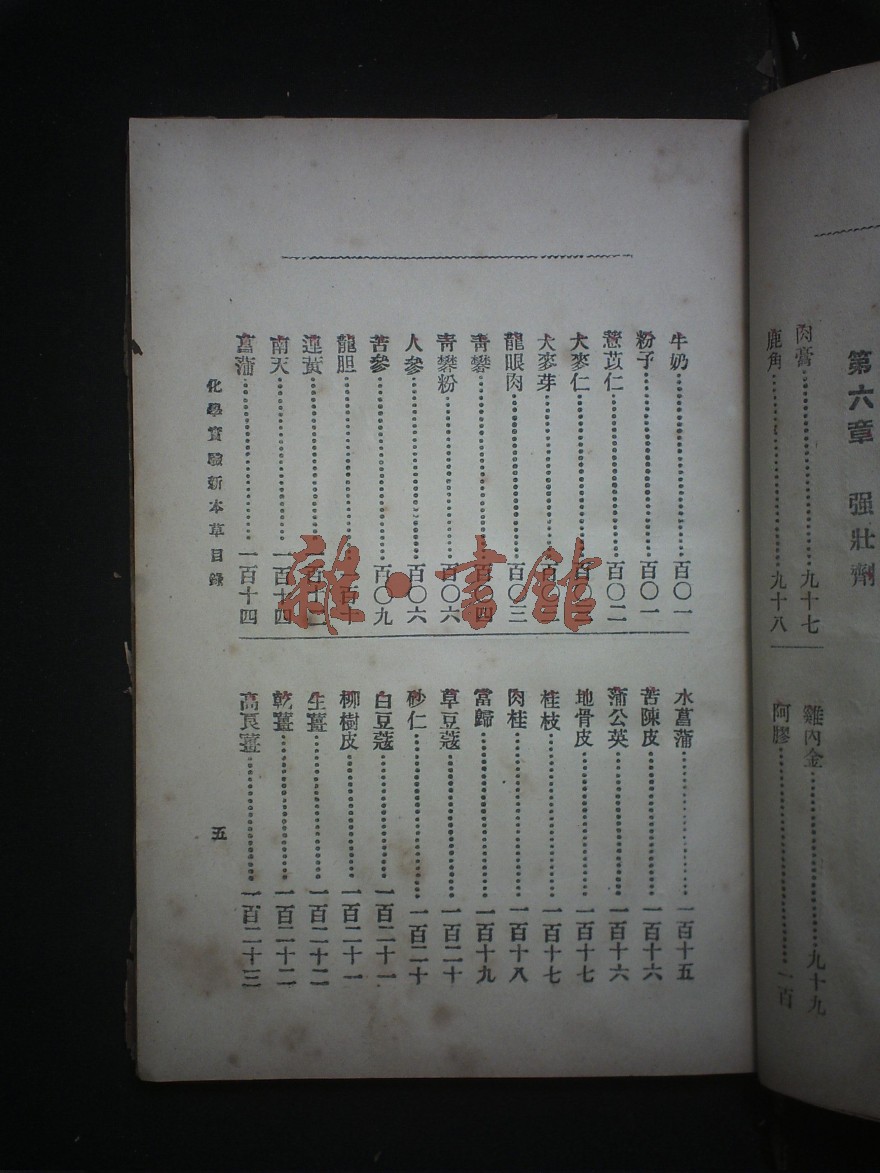 第六章　强壯劑
肉膏……九十七
鹿角……九十八
雞內金……九十九
阿膠……一百
牛奶……百〇一
粉子……百〇一
薏苡仁……百〇二
大麥仁……百〇二
大麥芽……百〇三
龍眼肉……百〇三
靑礬……百〇四
靑礬粉……百〇六
人參……百〇六
苦參……百〇九
龍胆……一百十
連黃……一百十二
南天……一百十四
菖蒲……一百十四
水菖蒲……一百十五
苦陳皮……一百十六
蒲公英……一百十六
地骨皮……一百十七
桂枝……一百十七
肉桂……一百十八
當歸……一百十九
草豆蔻……一百二十
砂仁……一百二十
白豆蔻……一百二十一
柳樹皮……一百二十一
生薑……一百二十二
乾薑……一百二十二
高良薑……一百二十三
化學實驗新本草目錄
五
雜·書館